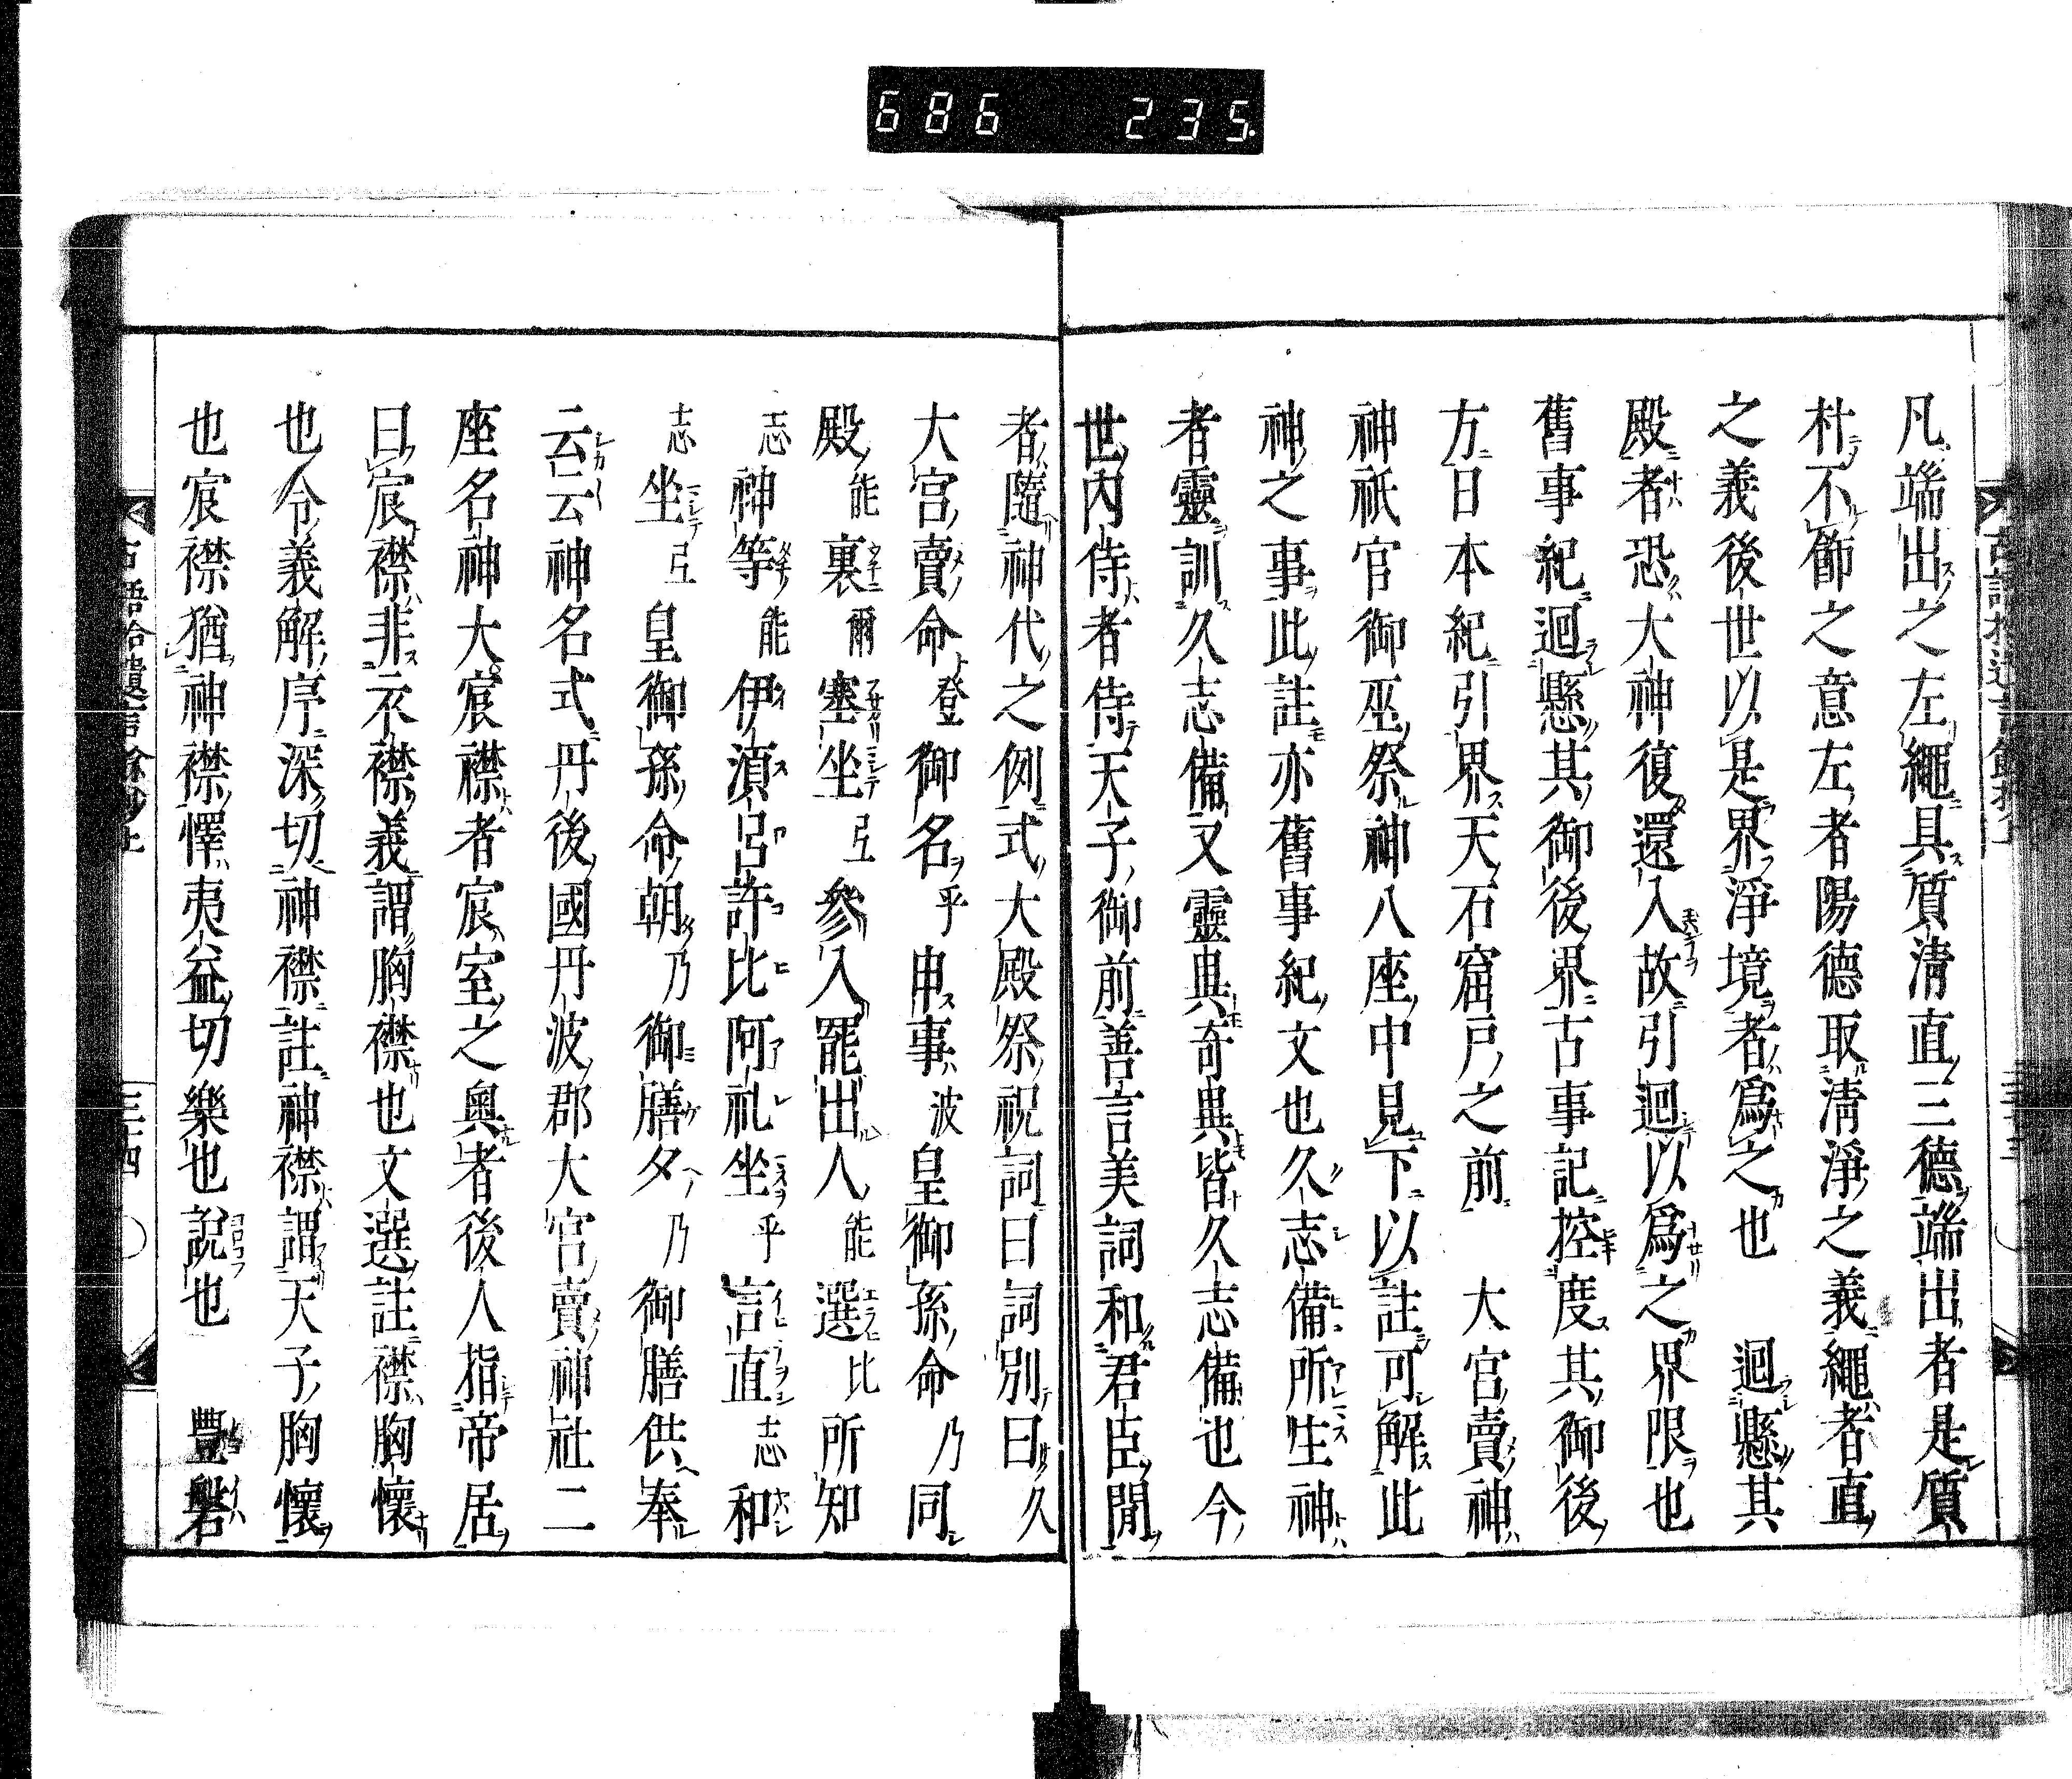 686 235
凡端出之左繩具質淸直三德端出者是質
朴不飾之意左者陽德取淸淨之義繩者直
之義後世以是界淨境者爲之也　迴懸其
殿者恐大神復還入故引迴以爲之界限也
舊事紀迴懸其御後界古事記控度其御後
方日本紀引界天石窟戶之前　大宮賣神
神祇官御巫祭神八座中見下以註可解此
神之事此註亦舊事紀文也久志備所生神
者靈訓久志備又靈異奇異皆久志備也今
世內侍者侍天子御前善言美詞和君臣間
者隨神代之例式大殿祭祝詞曰詞別曰久
大宮賣命登御名乎申事波皇御孫命乃同
殿能裏爾塞坐弖參入罷出人能選比所知
志神等能伊湏呂許比阿礼坐乎言直志和
志坐弖皇御孫命朝乃御膳夕乃御膳供奉
云云神名式丹後國丹波郡大宮賣神社二
座名神大宸襟者宸室之奥者後人指帝居
曰宸襟非衣襟義謂胸襟也文選註襟胸懷
也令義解序深切神襟註神襟謂天子胸懷
也宸襟猶神襟懌夷益切樂也說也　豐磐
古語拾遺言餘抄上
三四